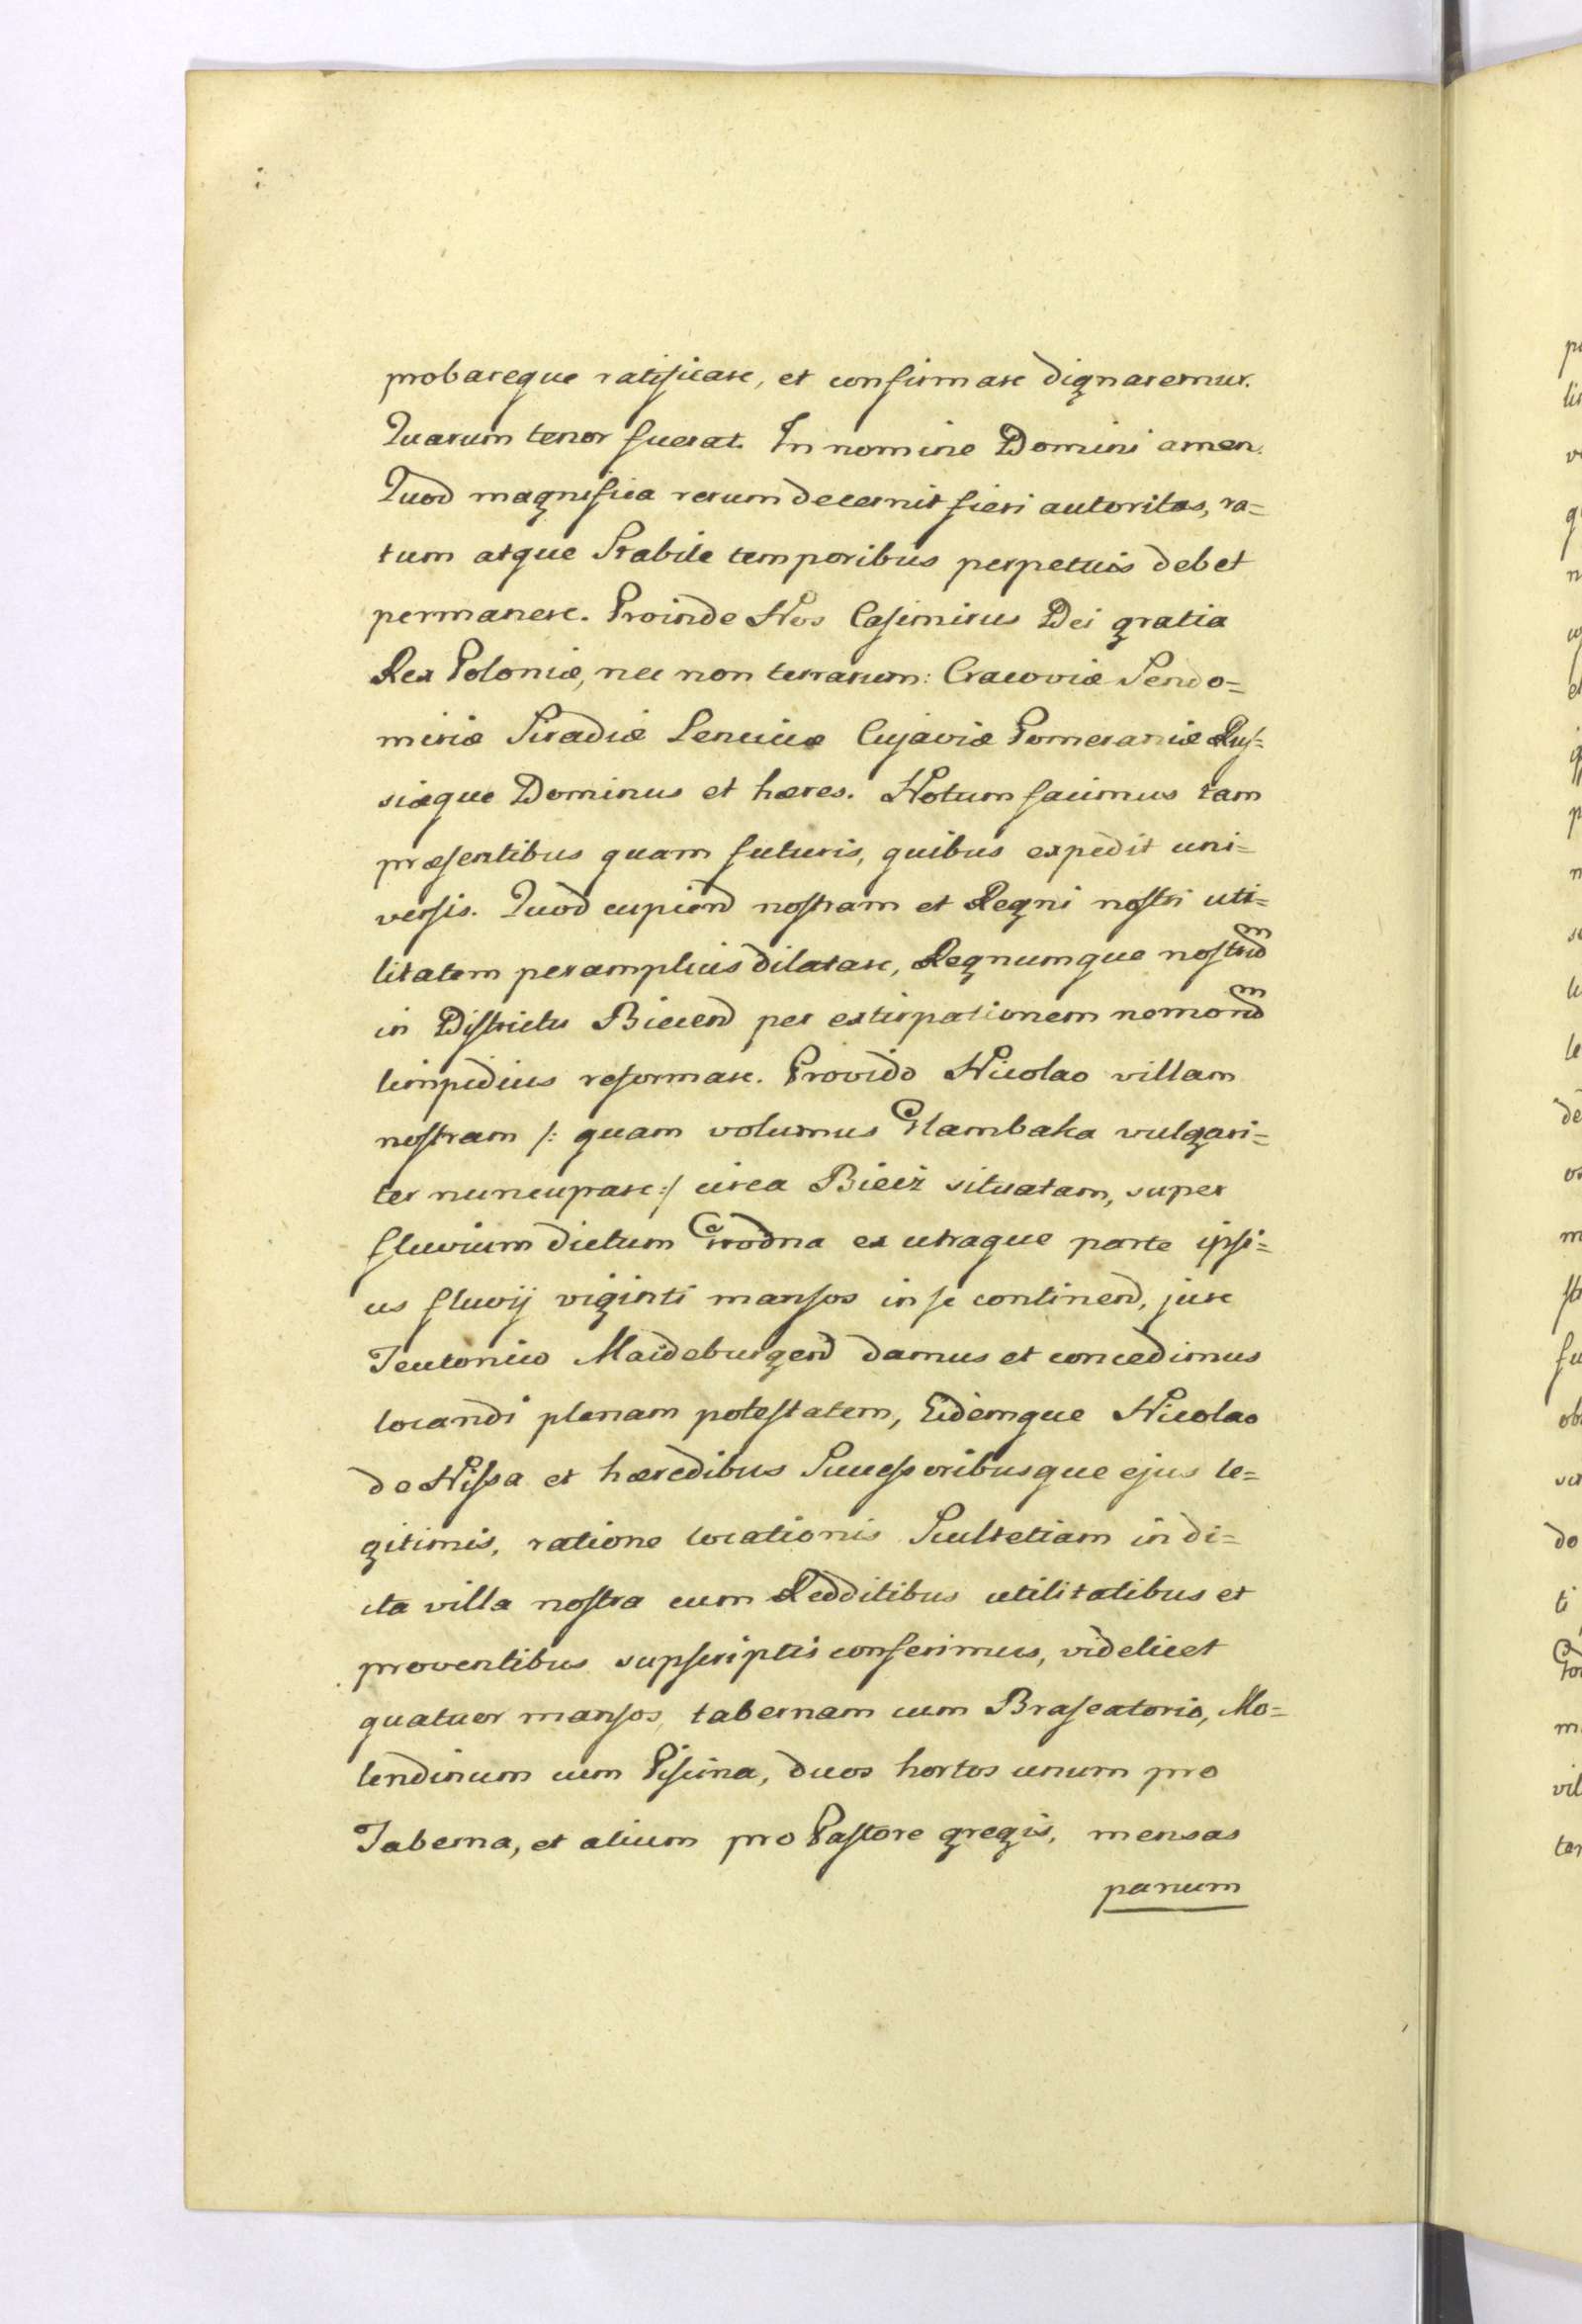 probareque ratificare, et confirmare dignaremur.
Quarum tenor fuerat. In nomine Domini amen.
Quod magnifica rerum decernit fieri autoritas, ra=
tum atque Stabile temporibus perpetuis debet
permanere. Proinde Nos Casimirus Dei gratia
Rex Poloniæ, nec non terrarum: Cracoviæ Sendo=
miriæ Siradiæ Lenciciæ Cujaviæ Pomeraniæ Rus=
siæque Dominus et hæres. Notum facimus tam
præsentibus quam futuris, quibus expedit uni=
versis. Quod cupiend nostram et Regni nostri uti=
litatem peramplius dilatare, Regnumque nostrū
in Districtu Biecend per extirpationem nemorū
limpidius reformare. Provido Nicolao villam
nostram /: quam volumus Glambaka vulgari=
ter nuncupare :/ circa Biecz situatam, super
fluvium dictum Grodna ex utraque parte ipsi=
us fluvij viginti mansos in se continend, jure
Teutonico Maideburgend damus et concedimus
locandi plenam potestatem, Eidemque Nicolao
de Nissa et hæredibus Successoribusque ejus le=
gitimis, ratione locationis Scultetiam in di=
cta villa nostra cum Redditibus utilitatibus et
proventibus supscriptis conferimus, videlicet
quatuor mansos, tabernam cum Braseatorio, Mo=
lendinum cum Piscina, duos hortos unum pro
Taberna, et alium pro Pastore gregis, mensas
panum